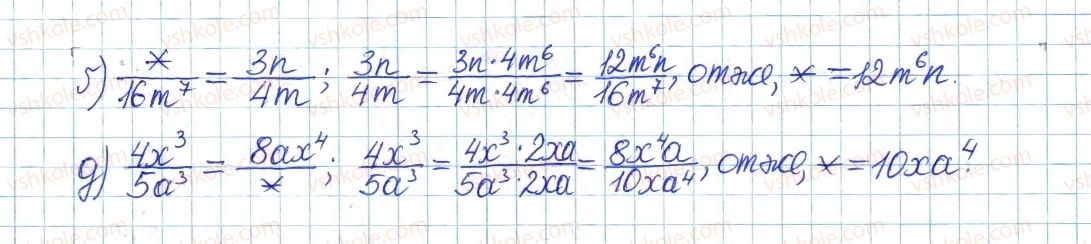 б) */16m⁷ = 3n/4m; 3n/4m = 3n·4m⁶/4m·4m⁶ = 12m⁶n/16m⁷, отже, * = 12m⁶n.
д) 4x³/5a³ = 8ax⁴/*; 4x³/5a³ = 4x³·2xa/5a³·2xa = 8x⁴a/10xa⁴, отже, * = 10xa⁴.